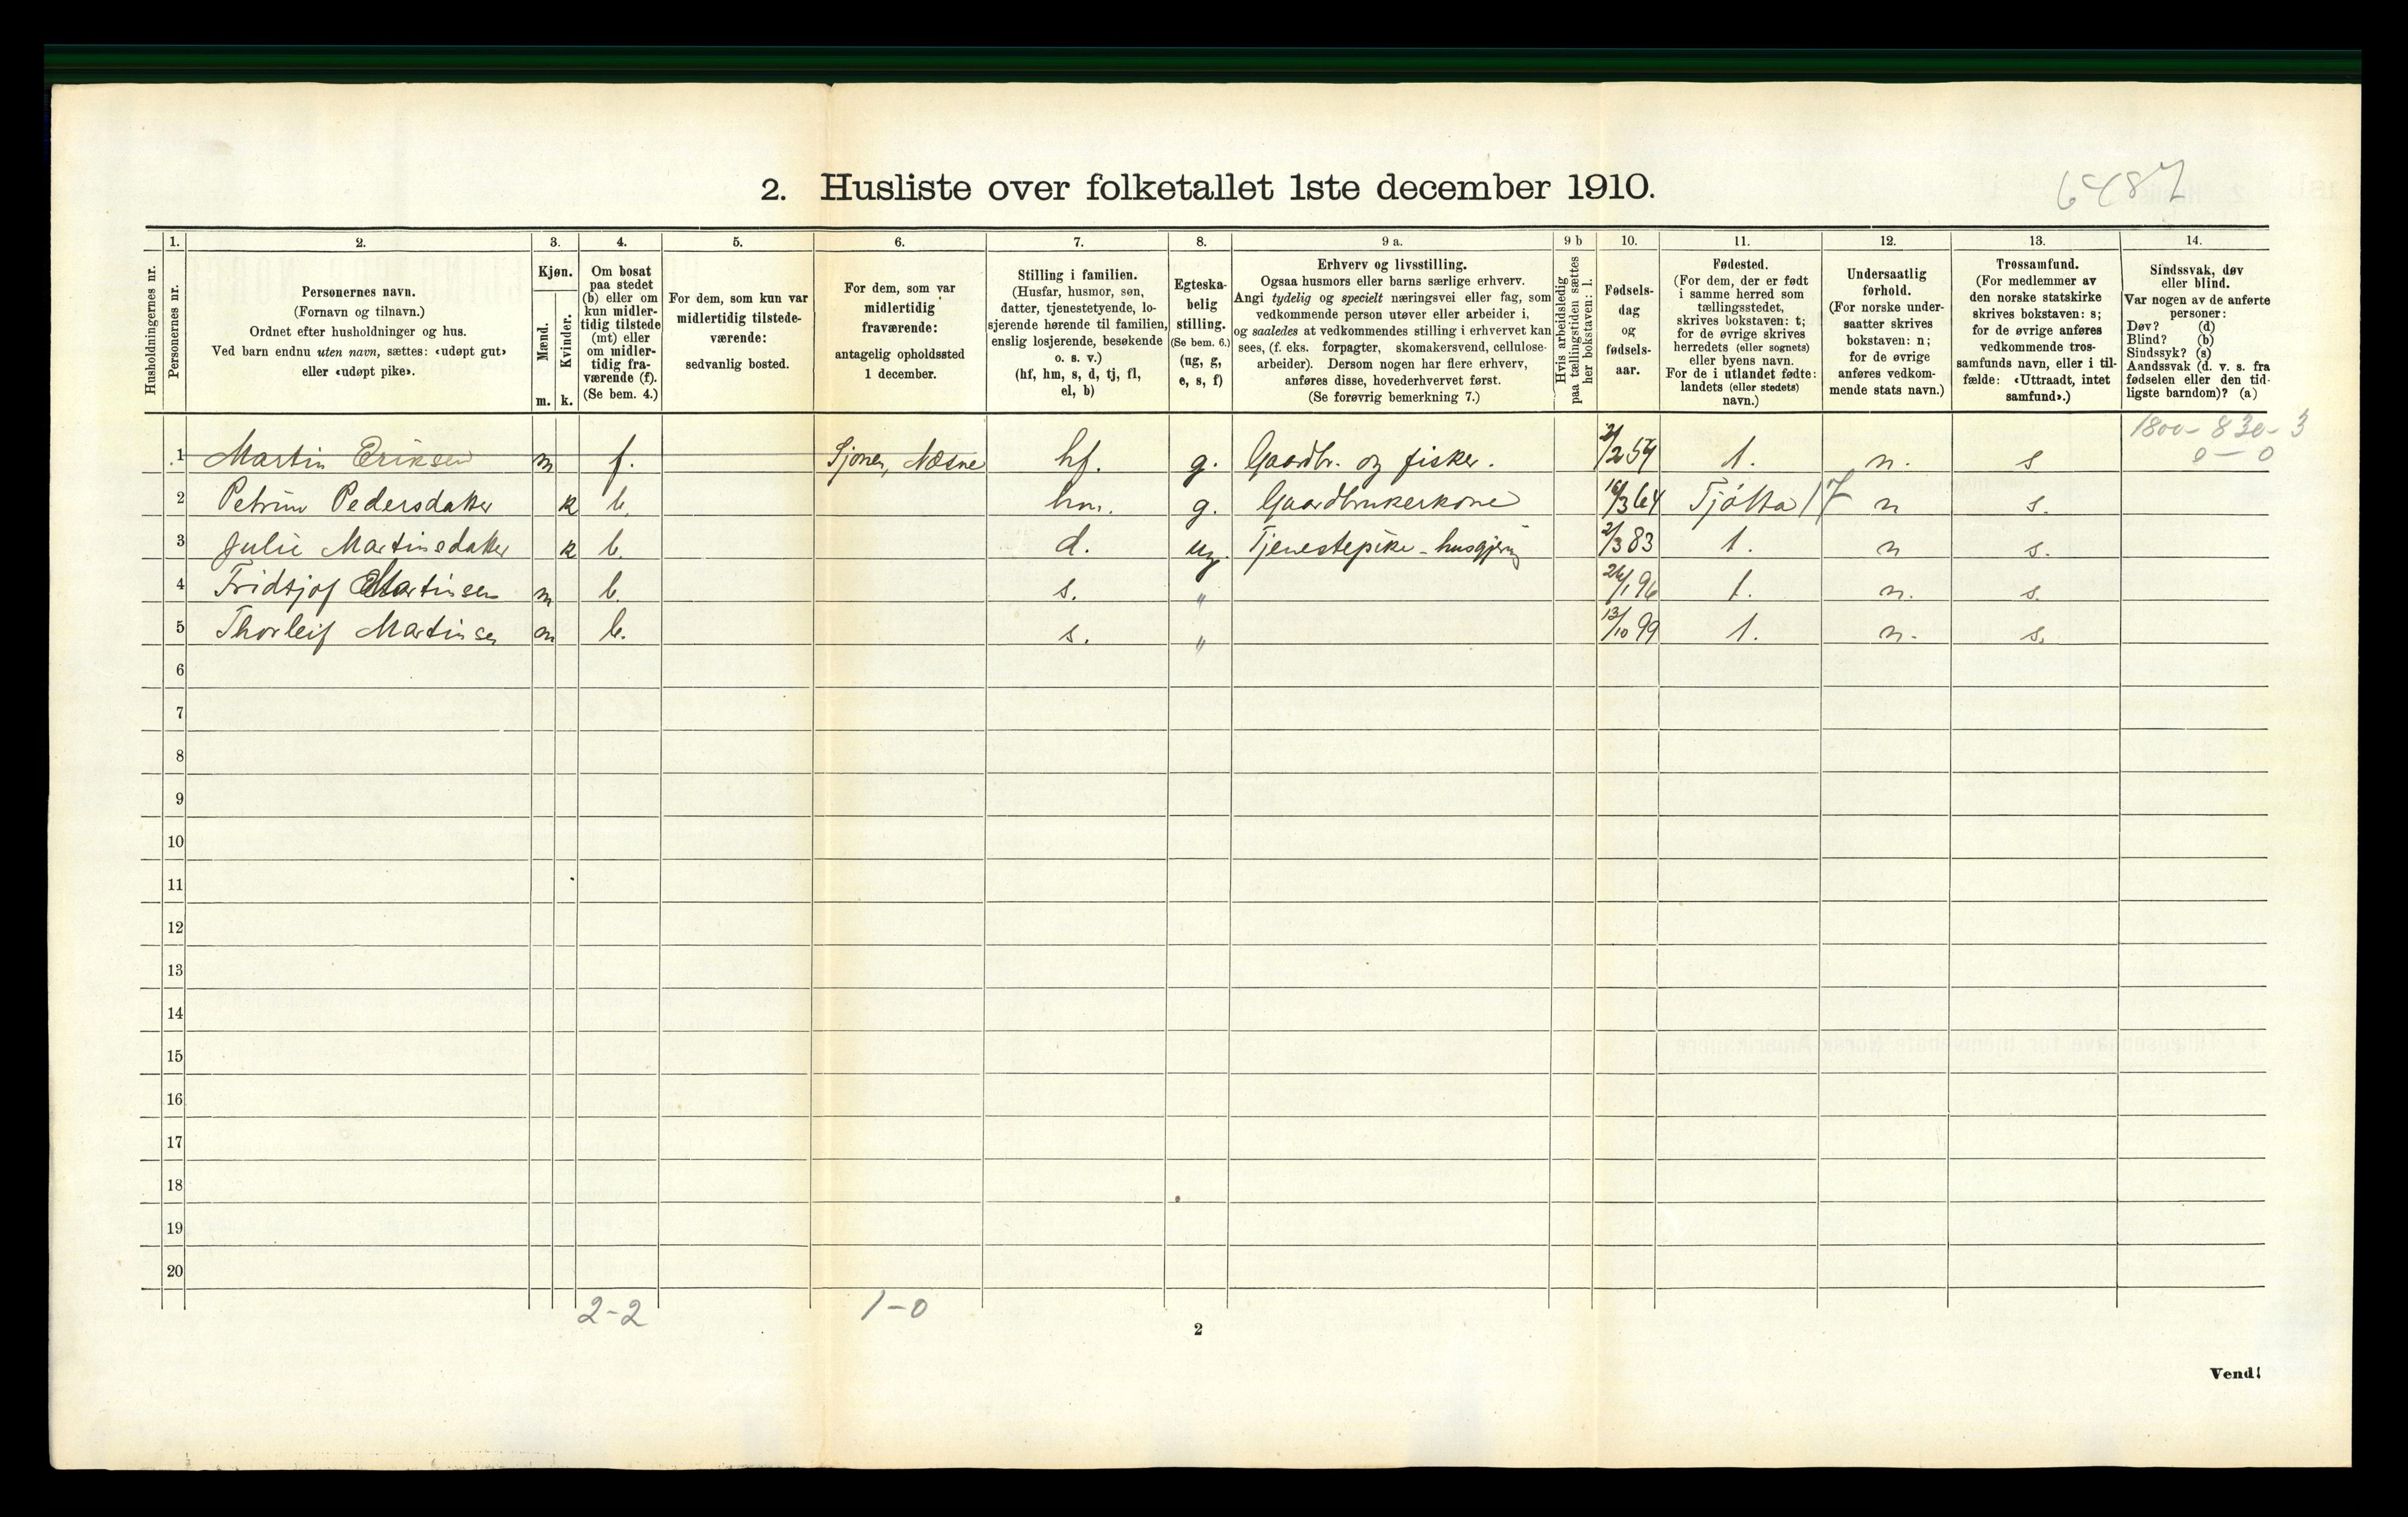 2. Husliste over folketallet 1ste december 1910.
6487
Husholdningernes nr.
1.
Personernes nr.
2.
Personernes navn.
(Fornavn og tilnavn.)
Ordnet efter husholdninger og hus.
Ved barn endnu uten navn, sættes: «udøpt gut»
eller «udøpt pike».
3.
Kjøn.
Mænd.
Kvinder.
m. k.
4.
Om bosat
paa stedet
(b) eller om
kun midler-
tidig tilstede
(mt) eller
om midler-
tidig fra-
værende (f).
(Se bem. 4.)
5.
For dem, som kun var
midlertidig tilstede-
værende:
sedvanlig bosted.
6.
For dem, som var
midlertidig
fraværende:
antagelig opholdssted
1 december.
7.
Stilling i familien.
(Husfar, husmor, søn,
datter, tjenestetyende, lo-
sjerende hørende til familien,
enslig losjerende, besøkende
o. s. v.)
(hf, hm, s, d, tj, fl,
el, b)
8.
Egteska-
belig
stilling.
(Se bem. 6.)
(ug, g,
e, s, f)
9 a.
Erhverv og livsstilling.
Ogsaa husmors eller barns særlige erhverv.
Angi tydelig og specielt næringsvei eller fag, som
vedkommende person utøver eller arbeider i,
og saaledes at vedkommendes stilling i erhvervet kan
sees, (f. eks. forpagter, skomakersvend, cellulose-
arbeider). Dersom nogen har flere erhverv,
anføres disse, hovederhvervet først.
(Se forøvrig bemerkning 7.)
9 b
Hvis arbeidsledig
paa tællingstiden sættes
her bokstaven: l.
10.
Fødsels-
dag
og
fødsels-
aar.
11.
Fødested.
(For dem, der er født
i samme herred som
tællingsstedet,
skrives bokstaven: t;
for de øvrige skrives
herredets (eller sognets)
eller byens navn.
For de i utlandet fødte:
landets (eller stedets)
navn.)
12.
Undersaatlig
forhold.
(For norske under-
saatter skrives
bokstaven: n;
for de øvrige
anføres vedkom-
mende stats navn.)
13.
Trossamfund.
(For medlemmer av
den norske statskirke
skrives bokstaven: s;
for de øvrige anføres
vedkommende tros-
samfunds navn, eller i til-
fælde: «Uttraadt, intet
samfund».)
14.
Sindssvak, døv
eller blind.
Var nogen av de anførte
personer:
Døv? (d)
Blind? (b)
Sindssyk? (s)
Aandssvak (d. v. s. fra
fødselen eller den tid-
ligste barndom)? (a)
1800 - 830 - 3
0 - 0
1 Martin Eriksen m f. Sjonen, Næsne hf. g. Gaardbr. og fisker. t. n. s
2 Petrine Pedersdatter k b. hm. g. Gaardbrukerkone 16/3 64 Tjøtta 17 n s.
3 Julie Martinsdatter k b. d. ug. Tjenestepike - husgjerning 2/3 83 t. n s.
4 Fridtjof Martinsen m b. s. " 26/1 96 t. n. s.
5 Thorleif Martinsen m b. s. " 13/10 99 t. n. s.
6
7
8
9
10
11
12
13
14
15
16
17
18
19
20
2-2
1-0
2
Vend!